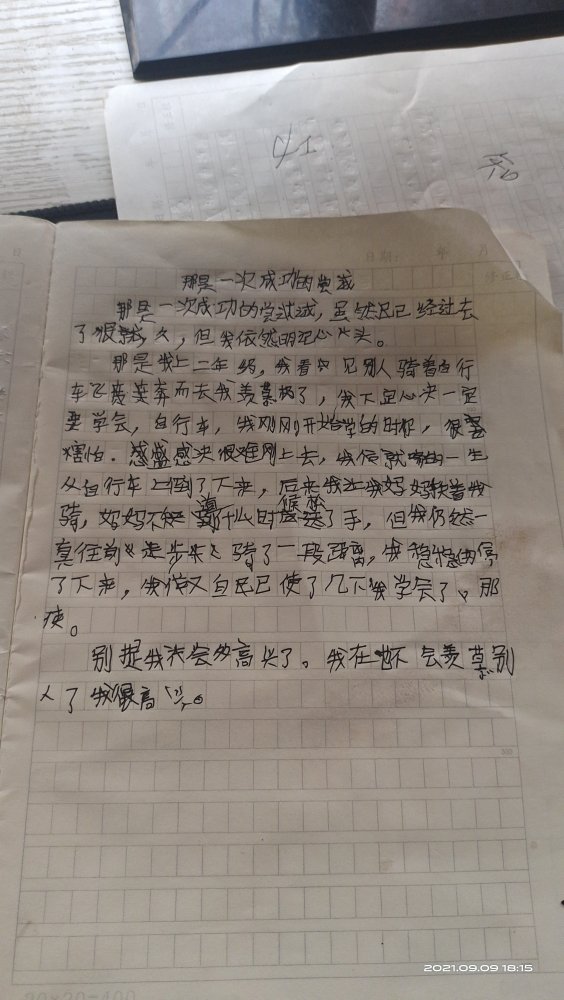 41
日期： 年 月
那是一次成功的尝试
那是一次成功的尝试，虽然已经过去
了很久，但我依然明记心头。
那是我上二年级，我看见别人骑着自行
车飞奔而去我羡慕极了，我下定心决一定
要学会，自行车，我刚刚开始学的时候，很
害怕．感 很难刚上去，我依就 一
从自行车上倒了下来，后来我让我妈妈扶着我
骑，妈妈不知道什么时候 了手，但我仍然一
直往前 骑了一段距离，我稳稳的停
了下来，我 又自己 了几下我学会了，那
。
别提我 会多高兴了。我在也不会羡慕别
人了我很高兴。
20×20=400
2021.09.09 18:15